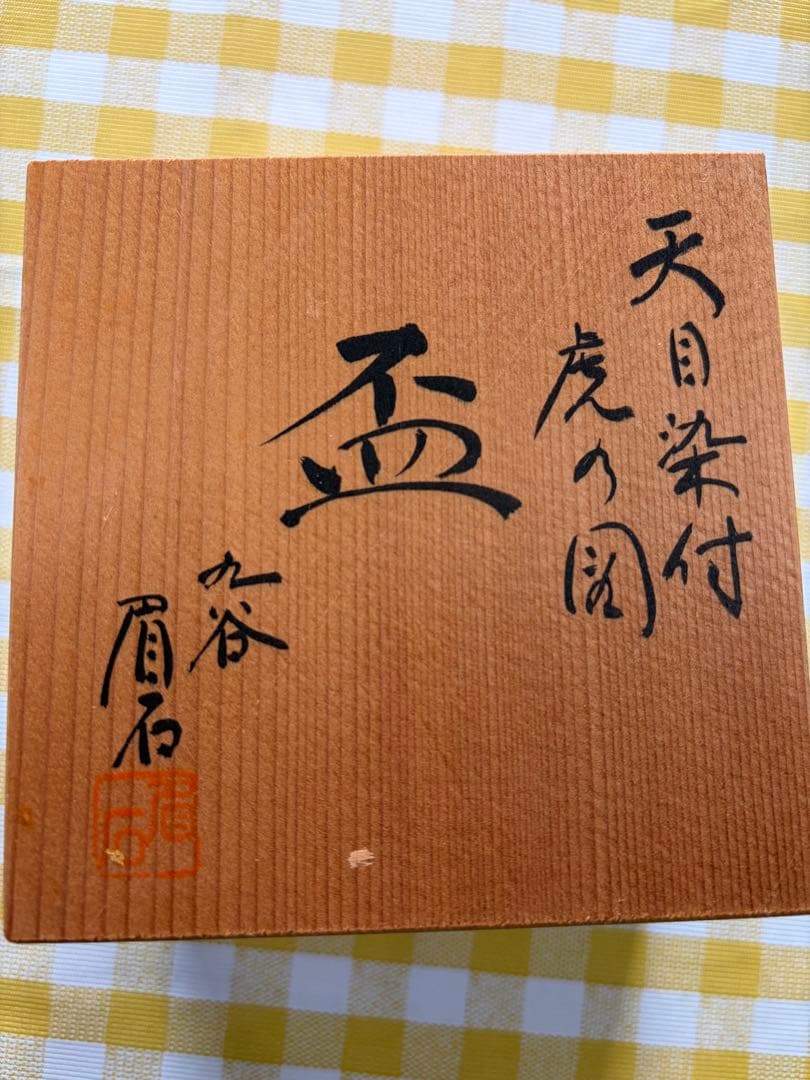 天目染付
虎の図
盃
九谷
眉石
眉石